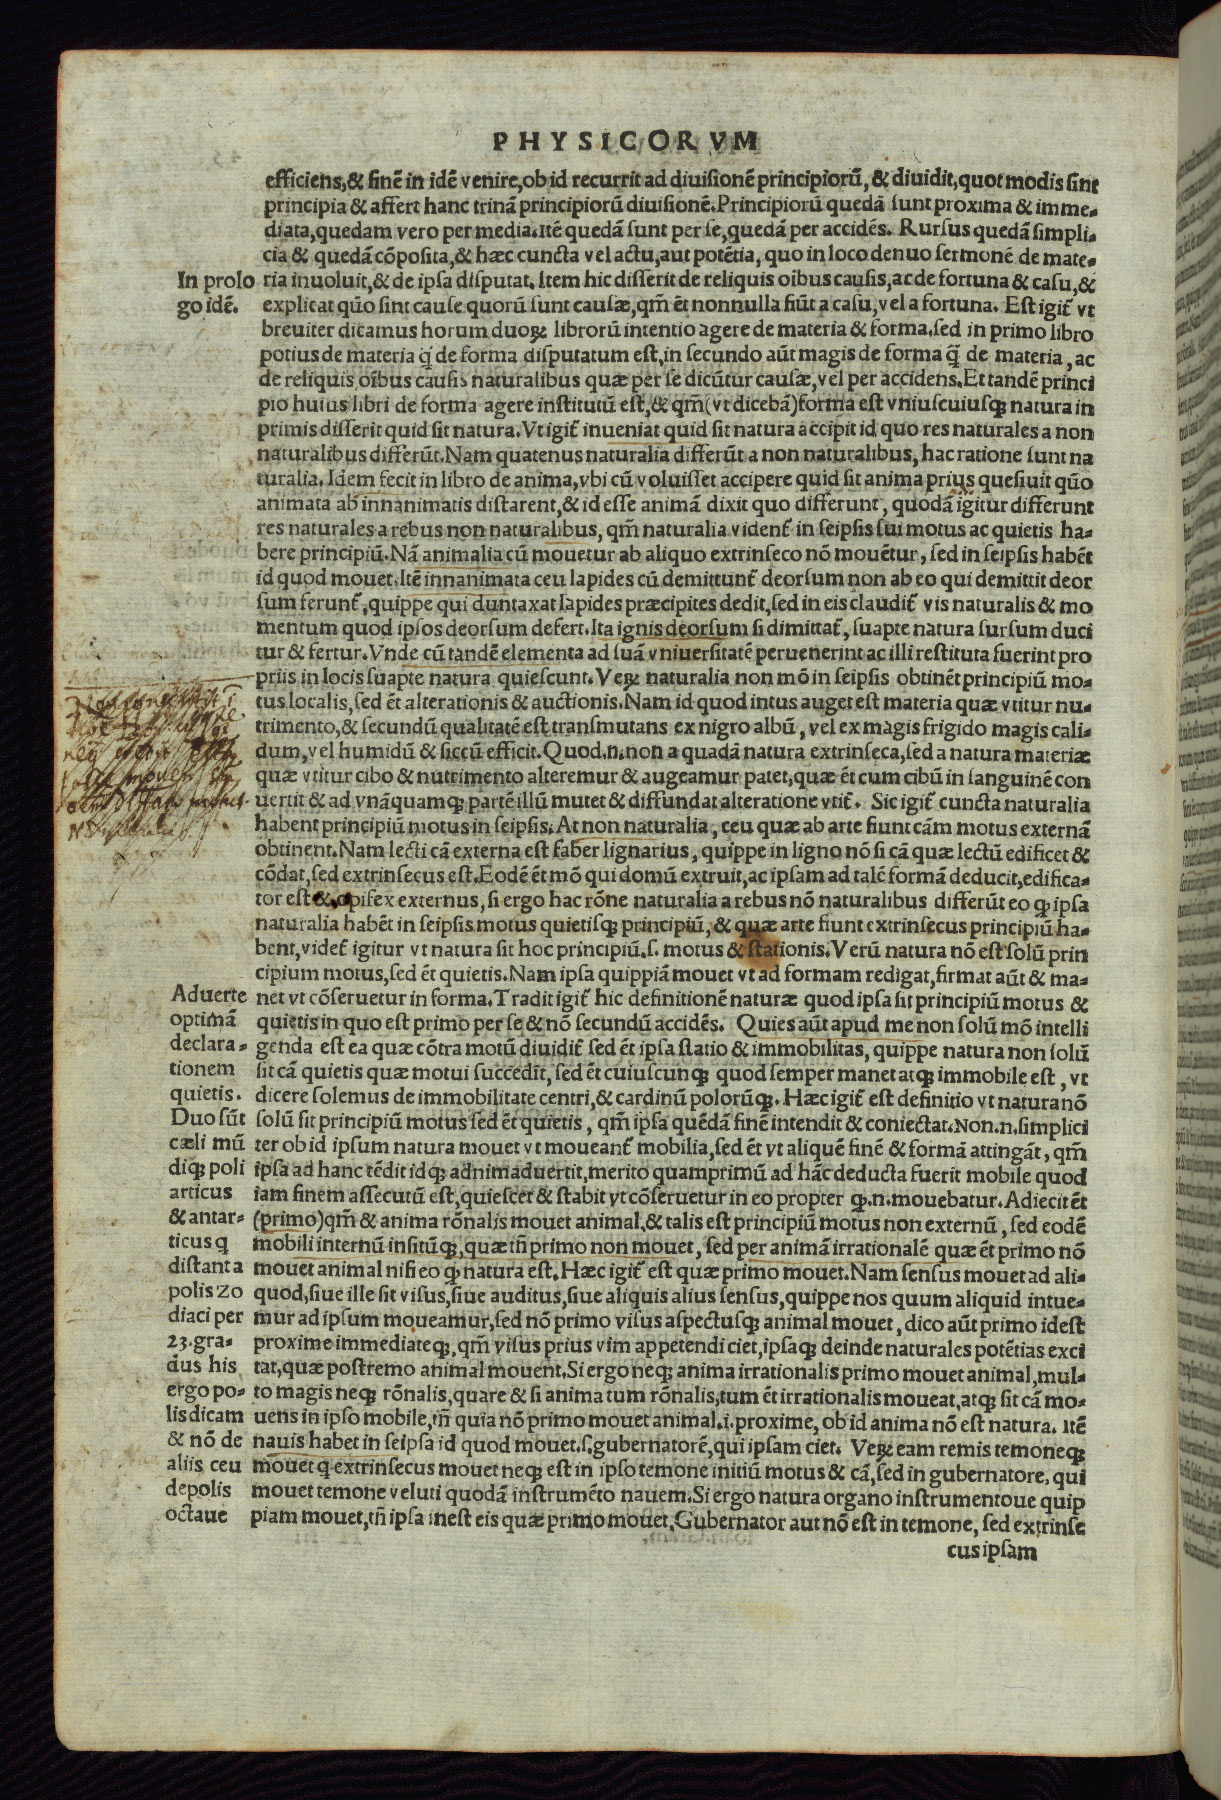 PHYSICORVM
efficiens,& finē in idē venire,ob id recurrit ad diuisionē principiorū, & diuidit,quot modis sint
principia & affert hanc trinā principiorū diuisionē.Principiorū quedā sunt proxima & imme-
diata,quedam vero per media.Itē quedā sunt per se,quedā per accidēs. Rursus quedā simpli-
cia & quedā cōposita,& hæc cuncta vel actu,aut potētia, quo in loco denuo sermonē de mate-
ria inuoluit,& de ipsa disputat. Item hic disserit de reliquis oībus causis,ac de fortuna & casu,&
explicat quō sint cause quorū sunt causæ,qm̄ ēt nonnulla fiūt a casu,vel a fortuna. Est igit̄ vt
breuiter dicamus horum duoꝝ librorū intentio agere de materia & forma.sed in primo libro
potius de materia q̄ de forma disputatum est,in secundo aūt magis de forma q̄ de materia, ac
de reliquis oībus causis naturalibus quæ per se dicūtur causæ,vel per accidens.Et tandē princi
pio huius libri de forma agere institutū est,& qm̄(vt dicebā)forma est vniuscuiusqꝫ natura in
primis disserit quid sit natura.Vt igit̄ inueniat quid sit natura accipit id quo res naturales a non
naturalibus differūt.Nam quatenus naturalia differūt a non naturalibus, hac ratione sunt na
turalia. Idem fecit in libro de anima,vbi cū voluisset accipere quid sit anima prius quesiuit quō
animata ab innanimatis distarent,& id esse animā dixit quo differunt, quodā igitur differunt
res naturales a rebus non naturalibus, qm̄ naturalia vident̄ in seipsis sui motus ac quietis ha-
bere principiū. Nā animalia cū mouetur ab aliquo extrinseco nō mouētur, sed in seipsis habēt
id quod mouet.Itē innanimata ceu lapides cū demittunt̄ deorsum non ab eo qui demittit deor
sum ferunt̄,quippe qui duntaxat lapides præcipites dedit,sed in eis claudit̄ vis naturalis & mo
mentum quod ipsos deorsum defert.Ita ignis deorsum si dimittat̄, suapte natura sursum duci
tur & fertur.Vnde cū tandē elementa ad suā vniuersitatē peruenerint ac illi restituta fuerint pro
priis in locis suapte natura quiescunt. Veꝝ naturalia non mō in seipsis obtinēt principiū mo-
tus localis,sed ēt alterationis & auctionis.Nam id quod intus auget est materia quæ vtitur nu-
trimento,& secundū qualitatē est transmutans ex nigro albū, vel ex magis frigido magis cali-
dum,vel humidū & siccū efficit.Quod.n.non a quadā natura extrinseca,sed a natura materiæ
quæ vtitur cibo & nutrimento alteremur & augeamur patet,quæ ēt cum cibū in sanguinē con
uertit & ad vnāquamqꝫ partē illū mutet & diffundat alteratione vtit̄. Sic igit̄ cuncta naturalia
habent principiū motus in seipsis. At non naturalia, ceu quæ ab arte fiunt cām motus externā
obtinent.Nam lecti cā externa est faber lignarius, quippe in ligno nō si cā quæ lectū edificet &
cōdat,sed extrinsecus est.Eodē ēt mō qui domū extruit,ac ipsam ad talē formā deducit,edifica-
tor est & opifex externus, si ergo hac rōne naturalia a rebus nō naturalibus differūt eo ꝙ ipsa
naturalia habēt in seipsis motus quietisqꝫ principiū, & quæ arte fiunt extrinsecus principiū ha-
bent,videt̄ igitur vt natura sit hoc principiū.s. motus & stationis.Verū natura nō est solū prin
cipium motus,sed ēt quietis.Nam ipsa quippiā mouet vt ad formam redigat,firmat aūt & ma-
net vt cōseruetur in forma.Tradit igit̄ hic definitionē naturæ quod ipsa sit principiū motus &
quietis in quo est primo per se & nō secundū accidēs. Quies aūt apud me non solū mō intelli
genda est ea quæ cōtra motū diuidit̄ sed ēt ipsa statio & immobilitas, quippe natura non solū
sit cā quietis quæ motui succedit,sed ēt cuiuscunqꝫ quod semper manet atqꝫ immobile est, vt
dicere solemus de immobilitate centri,& cardinū polorūqꝫ. Hæc igit̄ est definitio vt natura nō
solū sit principiū motus sed ēt quietis, qm̄ ipsa quēdā finē intendit & coniectat.Non.n.simplici
ter ob id ipsum natura mouet vt moueant̄ mobilia,sed ēt vt aliquē finē & formā attingāt, qm̄
ipsa ad hanc tēdit idqꝫ adnimaduertit,merito quamprimū ad hāc deducta fuerit mobile quod
iam finem assecutū est,quiescet & stabit vt cōseruetur in eo propter ꝙ.n.mouebatur.Adiecit ēt
(primo)qm̄ & anima rōnalis mouet animal,& talis est principiū motus non externū, sed eodē
mobili internū insitūqꝫ,quæ tn̄ primo non mouet, sed per animā irrationalē quæ ēt primo nō
mouet animal nisi eo ꝙ natura est.Hæc igit̄ est quæ primo mouet.Nam sensus mouet ad ali-
quod,siue ille sit visus,siue auditus,siue aliquis alius sensus,quippe nos quum aliquid intue-
mur ad ipsum moueamur,sed nō primo visus aspectusqꝫ animal mouet, dico aūt primo idest
proxime immediateqꝫ,qm̄ visus prius vim appetendi ciet,ipsaqꝫ deinde naturales potētias exci
tat,quæ postremo animal mouent.Si ergo neqꝫ anima irrationalis primo mouet animal,mul-
to magis neqꝫ rōnalis,quare & si anima tum rōnalis,tum ēt irrationalis moueat,atqꝫ sit cā mo-
uens in ipso mobile,tn̄ quia nō primo mouet animal.i.proxime, ob id anima nō est natura. Itē
nauis habet in seipsa id quod mouet.s.gubernatorē,qui ipsam ciet. Veꝝ eam remis temoneqꝫ
mouet q extrinsecus mouet neqꝫ est in ipso temone initiū motus & cā,sed in gubernatore, qui
mouet temone veluti quodā instrumēto nauem.Si ergo natura organo instrumentoue quip
piam mouet,tn̄ ipsa inest eis quæ primo mouet.Gubernator aut nō est in temone, sed extrinse
cus ipsam
In prolo
go idē.
Aduerte
optimā
declara-
tionem
quietis.
Duo sūt
cæli mū
diqꝫ poli
articus
& antar-
ticus q
distant a
polis zo
diaci per
23.gra-
dus his
ergo po-
lis dicam
& nō de
aliis ceu
de polis
octaue